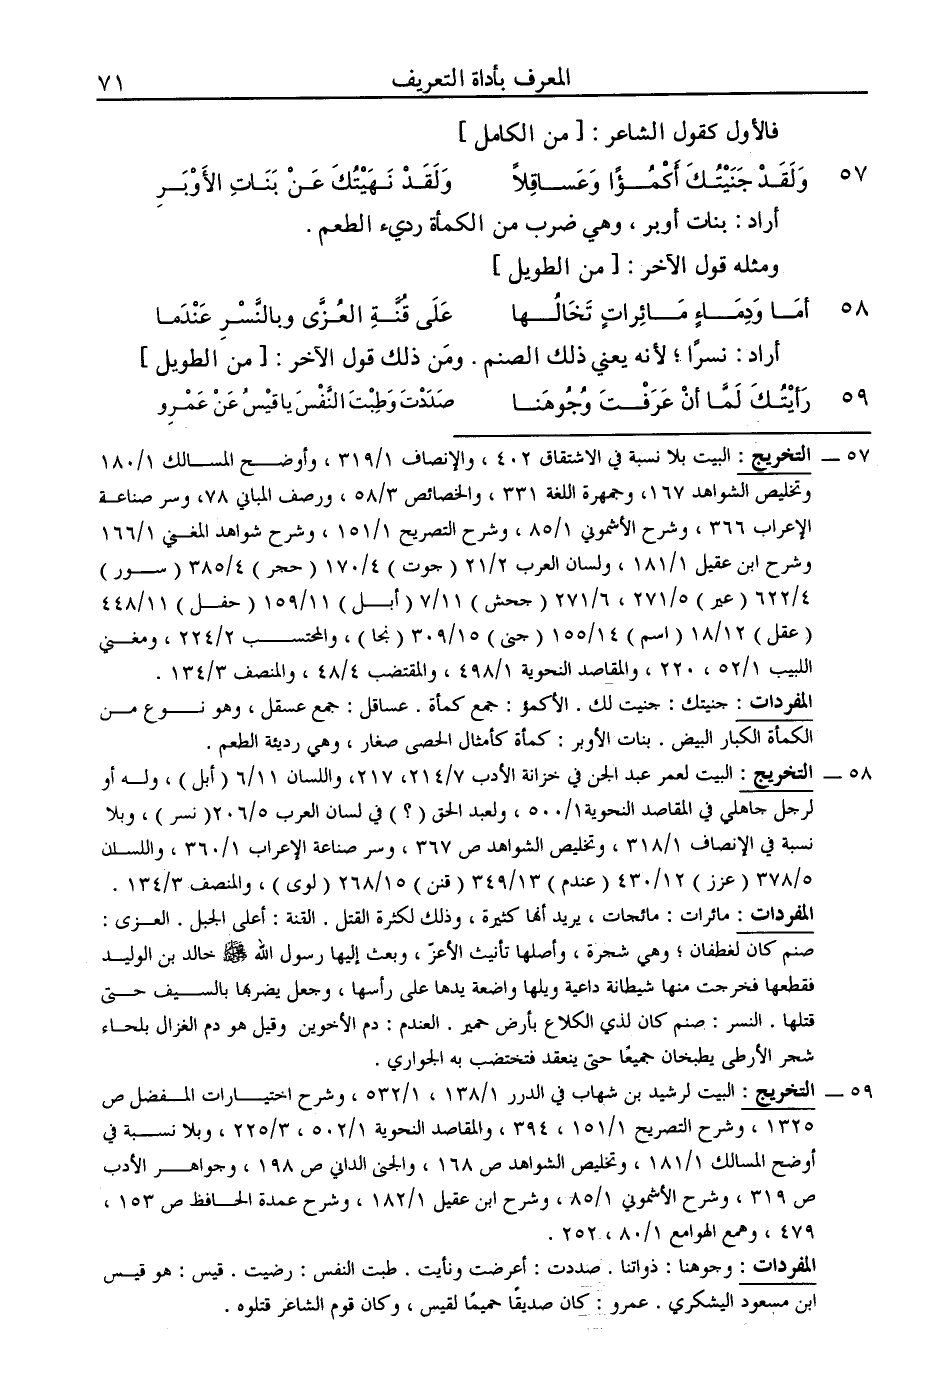 المعرف بأداة التعريف ٧١
فالأول كقول الشاعر : [ من الكامل ]
٥٧ وَلَقَدْ جَنَيْتُكَ أَكْمُؤًا وَعَسَاقِلاً وَلَقَدْ نَهَيْتُكَ عَنْ بَنَاتِ الأَوْبَرِ
أراد : بنات أوبر ، وهي ضرب من الكمأة رديء الطعم .
ومثله قول الآخر : [ من الطويل ]
٥٨ أمَا وَدِمَاءٍ مَائِراتٍ تَخَالُها عَلَى قُنَّةِ العُزَّى وبالنَّسْرِ عَنْدَمَا
أراد : نسرًا ؛ لأنه يعني ذلك الصنم . ومَن ذلك قول الآخر : [ من الطويل ]
٥٩ رَأَيْتُكَ لَمَّا أنْ عَرَفْتَ وُجُوهَنا صَدَدْتَ وَطِبْتَ النَّفْسَ يا قَيْسُ عَنْ عَمْرِو
٥٧ ــ التخريج : البيت بلا نسبة في الاشتقاق ٤٠٢ ، والإنصاف ٣١٩/١ ، وأوضح المسالك ١٨٠/١
وتخليص الشواهد ١٦٧، وجمهرة اللغة ٣٣١ ، والخصائص ٥٨/٣ ، ورصف المباني ٧٨، وسر صناعة
الإعراب ٣٦٦ ، وشرح الأشموني ٨٥/١ ، وشرح التصريح ١٥١/١ ، وشرح شواهد المغني ١٦٦/١
وشرح ابن عقيل ١٨١/١ ، ولسان العرب ٢١/٢ ( جوت ) ١٧٠/٤ ( حجر ) ٣٨٥/٤ ( سور )
٦٢٢/٤ ( عير ) ٢٧١/٥ ، ٢٧١/٦ ( جحش ) ٧/١١ ( أبل ) ١٥٩/١١ ( حفل ) ٤٤٨/١١
( عقل ) ١٨/١٢ ( اسم ) ١٥٥/١٤ ( جنى ) ٣٠٩/١٥ ( نجا ) ، والمحتسب ٢٢٤/٢ ، ومغني
اللبيب ٥٢/١ ، ٢٢٠ ، والمقاصد النحوية ٤٩٨/١ ، والمقتضب ٤٨/٤ ، والمنصف ١٣٤/٣ .
المفردات : جنيتك : جنيت لك . الأكمؤ : جمع كمأة . عساقل : جمع عسقل ، وهو نوع من
الكمأة الكبار البيض . بنات الأوبر : كمأة كأمثال الحصى صغار ، وهي رديئة الطعم .
٥٨ ــ التخريج : البيت لعمر عبد الجن في خزانة الأدب ٢١٤/٧، ٢١٧، واللسان ٦/١١ ( أبل ) ، وله أو
لرجل جاهلي في المقاصد النحوية ٥٠٠/١ ، ولعبد الحق ( ؟ ) في لسان العرب ٢٠٦/٥( نسر ) ، وبلا
نسبة في الإنصاف ٣١٨/١ ، وتخليص الشواهد ص ٣٦٧ ، وسر صناعة الإعراب ٣٦٠/١ ، واللسان
٣٧٨/٥ ( عزز ) ٤٣٠/١٢ ( عندم ) ٣٤٩/١٣ ( قنن ) ٢٦٨/١٥ ( لوى ) ، والمنصف ١٣٤/٣ .
المفردات : مائرات : مائجات ، يريد أنها كثيرة ، وذلك لكثرة القتل . القنة : أعلى الجبل . العزى :
صنم كان لغطفان ؛ وهي شجرة ، وأصلها تأنيث الأعزّ ، وبعث إليها رسول الله ﷺ خالد بن الوليد
فقطعها فخرجت منها شيطانة داعية ويلها واضعة يدها على رأسها ، وجعل يضربها بالسيف حتى
قتلها . النسر : صنم كان لذي الكلاع بأرض حمير . العندم : دم الأخوين وقيل هو دم الغزال بلحاء
شجر الأرطى يطبخان جميعًا حتى ينعقد فتختضب به الجواري .
٥٩ ــ التخريج : البيت لرشيد بن شهاب في الدرر ١٣٨/١ ، ٥٣٢/١ ، وشرح اختيارات المفضل ص
١٣٢٥ ، وشرح التصريح ١٥١/١ ، ٣٩٤ ، والمقاصد النحوية ٥٠٢/١ ، ٢٢٥/٣ ، وبلا نسبة في
أوضح المسالك ١٨١/١ ، وتخليص الشواهد ص ١٦٨ ، والجنى الداني ص ١٩٨ ، وجواهر الأدب
ص ٣١٩ ، وشرح الأشموني ٨٥/١ ، وشرح ابن عقيل ١٨٢/١ ، وشرح عمدة الحافظ ص ١٥٣ ،
٤٧٩ ، وهمع الهوامع ٨٠/١ ، ٢٥٢ .
المفردات : وجوهنا : ذواتنا . صددت : أعرضت ونأيت . طبت النفس : رضيت . قيس : هو قيس
ابن مسعود اليشكري . عمرو : كان صديقًا حميمًا لقيس ، وكان قوم الشاعر قتلوه .